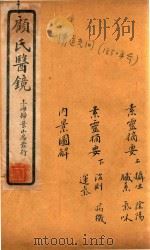 顧氏醫鏡
上海掃葉山房發行
素靈摘要上
攝生 陰陽
臟象 氣味
素靈摘要下
治則 病機
運氣
內景圖解